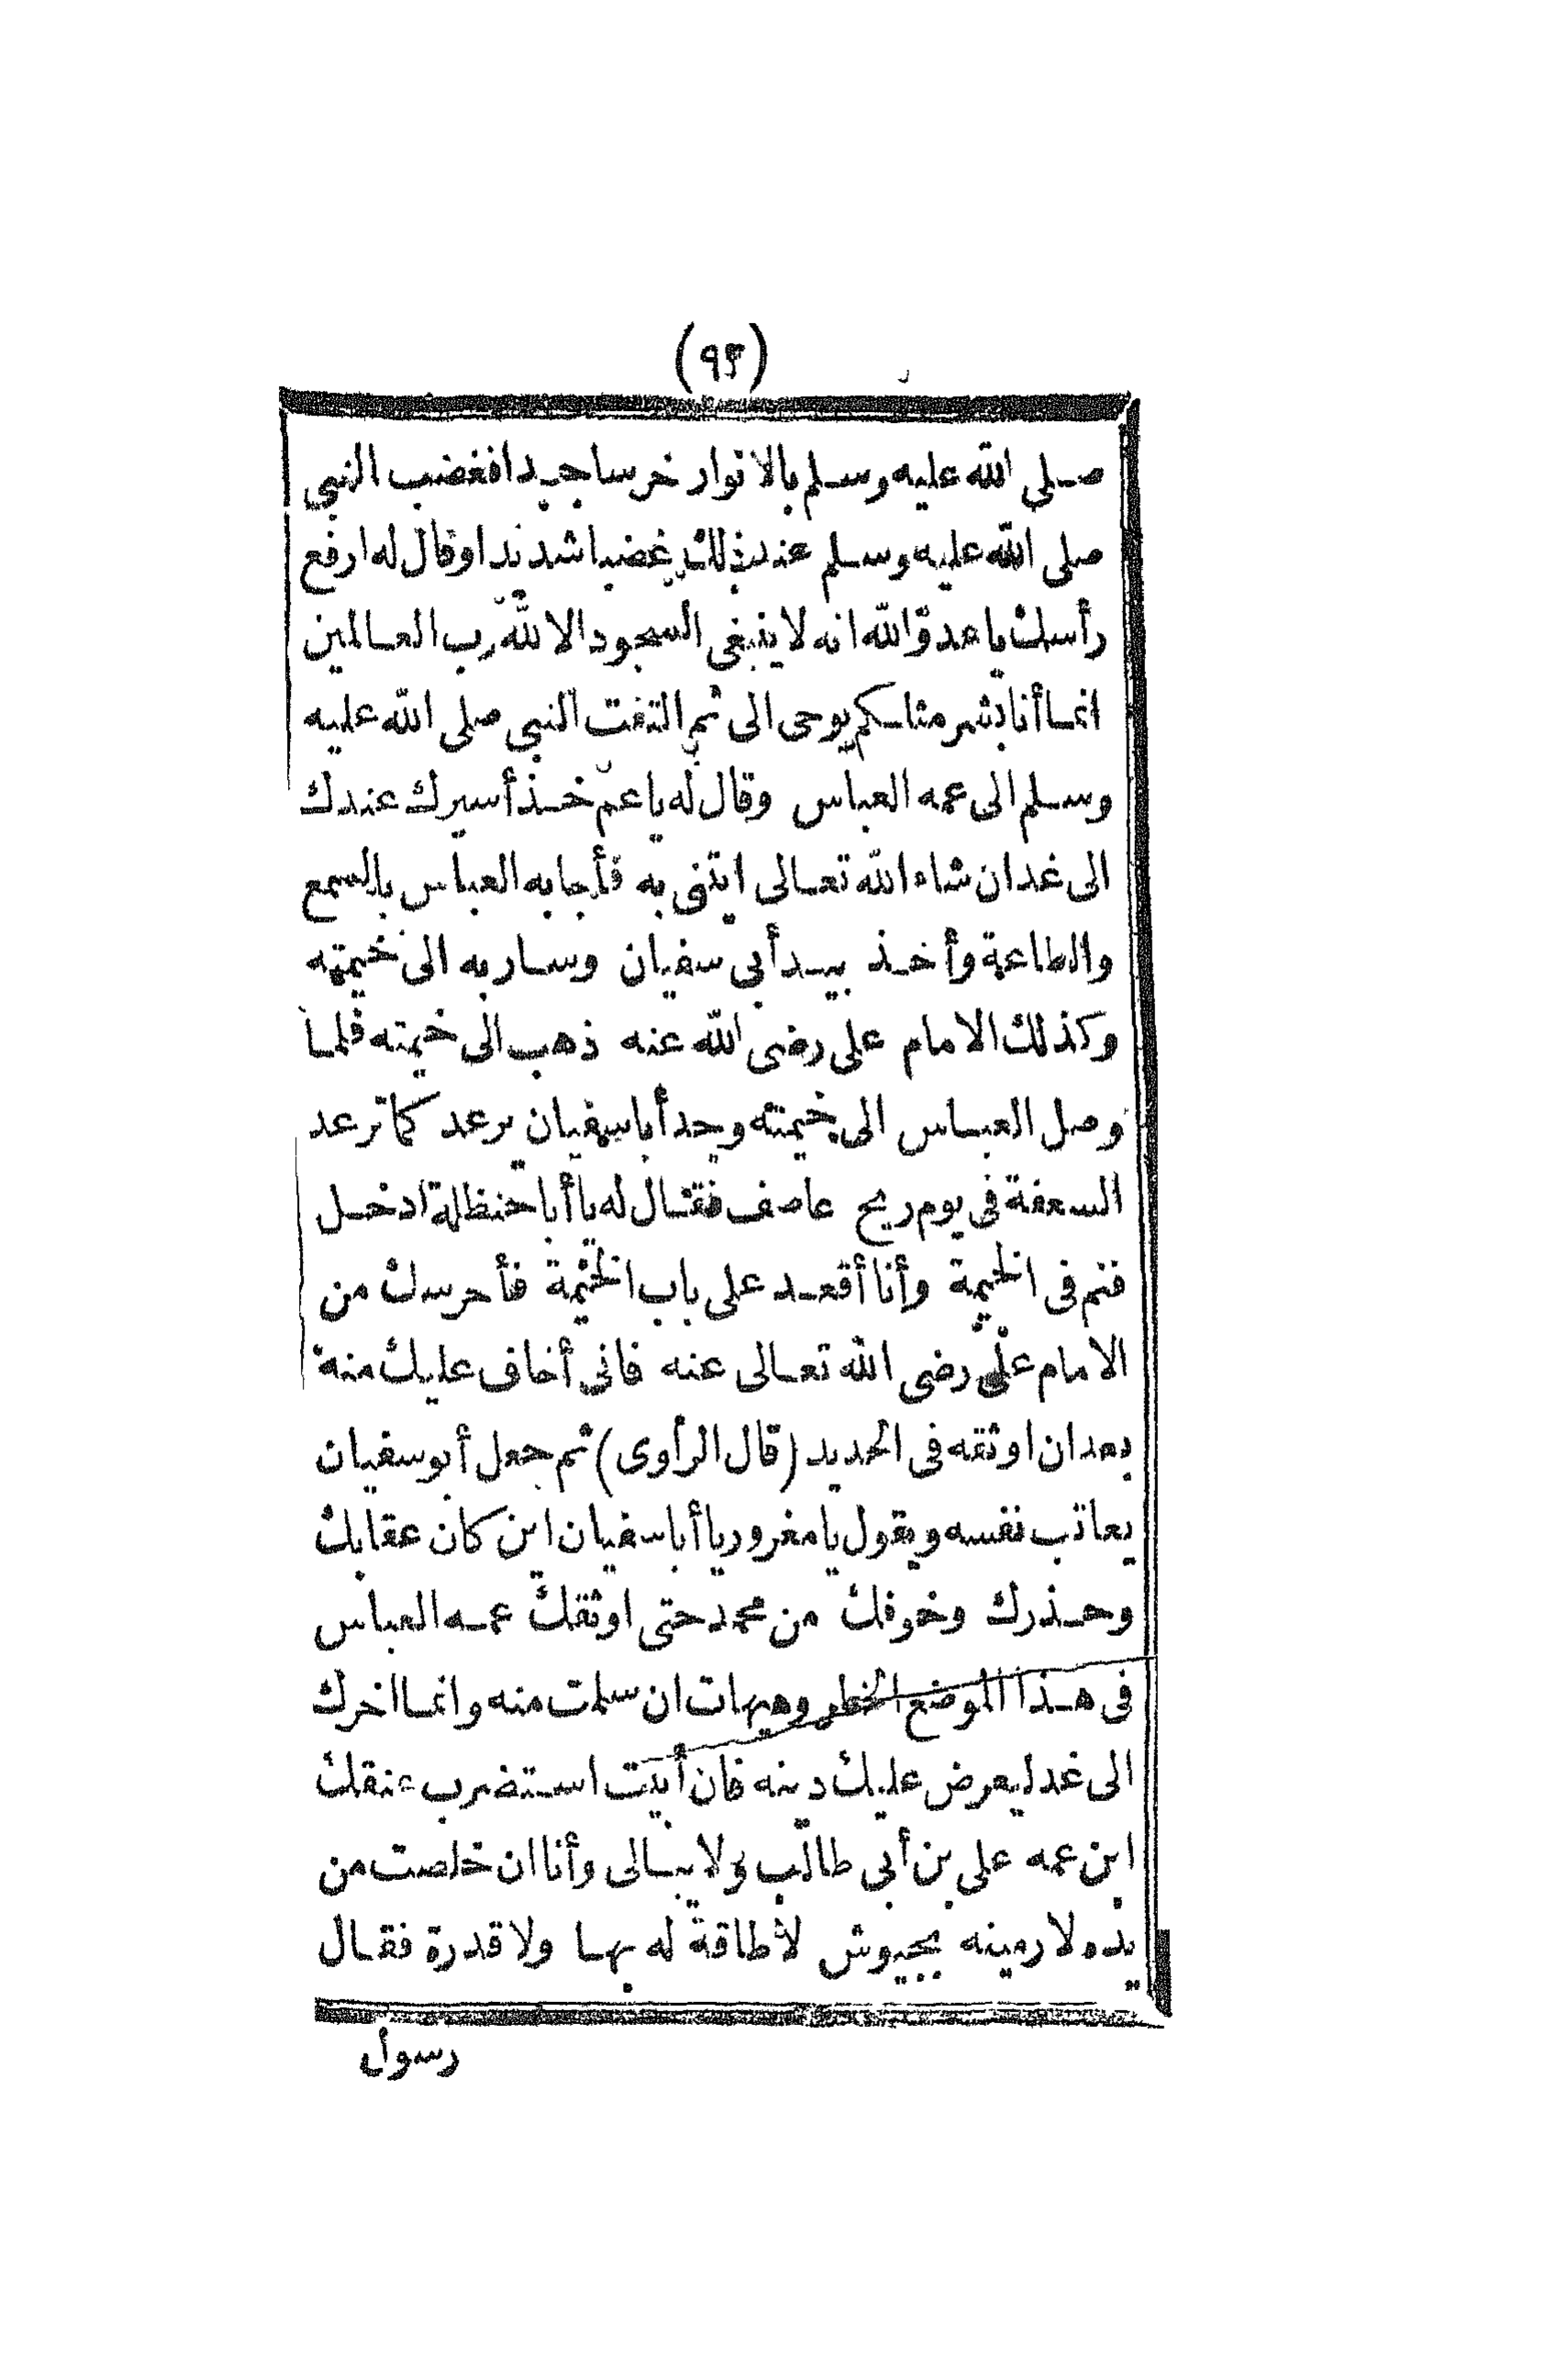 (٩٣)
صلى الله عليه وسلم بالانوار خرساجدا فغضب النبى
صلى الله عليه وسلم عند ذلك غضبا شديدا وقال له ارفع
رأسك يا عدوّ الله انه لا ينبغى السجود الا لله رب العالمين
انما أنا بشر مثلكم يوحى الى ثم التفت النبي صلى الله عليه
وسلم الى عمه العباس وقال له يا عم خذ أسيرك عندك
الى غد ان شاء الله تعالى ائتنى به فأجابه العباس بالسمع
والطاعة وأخذ بيد أبى سفيان وسار به الى خيمته
وكذلك الامام على رضى الله عنه ذهب الى خيمته فلما
وصل العباس الى خيمته وجد أبا سفيان يرعد كما ترعد
السعفة فى يوم ريح عاصف فقال له يا أبا حنظلة ادخل
فنم فى الخيمة وأنا أقعد على باب الخيمة فأحرسك من
الامام على رضى الله تعالى عنه فانى أخاف عليك منه
بعد ان اوثقه فى الحديد (قال الرأوى) ثم جعل أبو سفيان
يعاتب نفسه ويقول يا مغرور يا أبا سفيان اين كان عقابك
وحذرك وخوفك من محمد حتى اوثقك عمه العباس
فى هذا الموضع الخطر وهيهات ان سلمت منه وانما اخرك
الى غد ليعرض عليك دينه فان أبيت استضرب عنقك
ابن عمه على بن أبى طالب ولا يبالى وأنا ان خلصت من
يده لارمينه بجيوش لا طاقة له بها ولا قدرة فقال
رسول